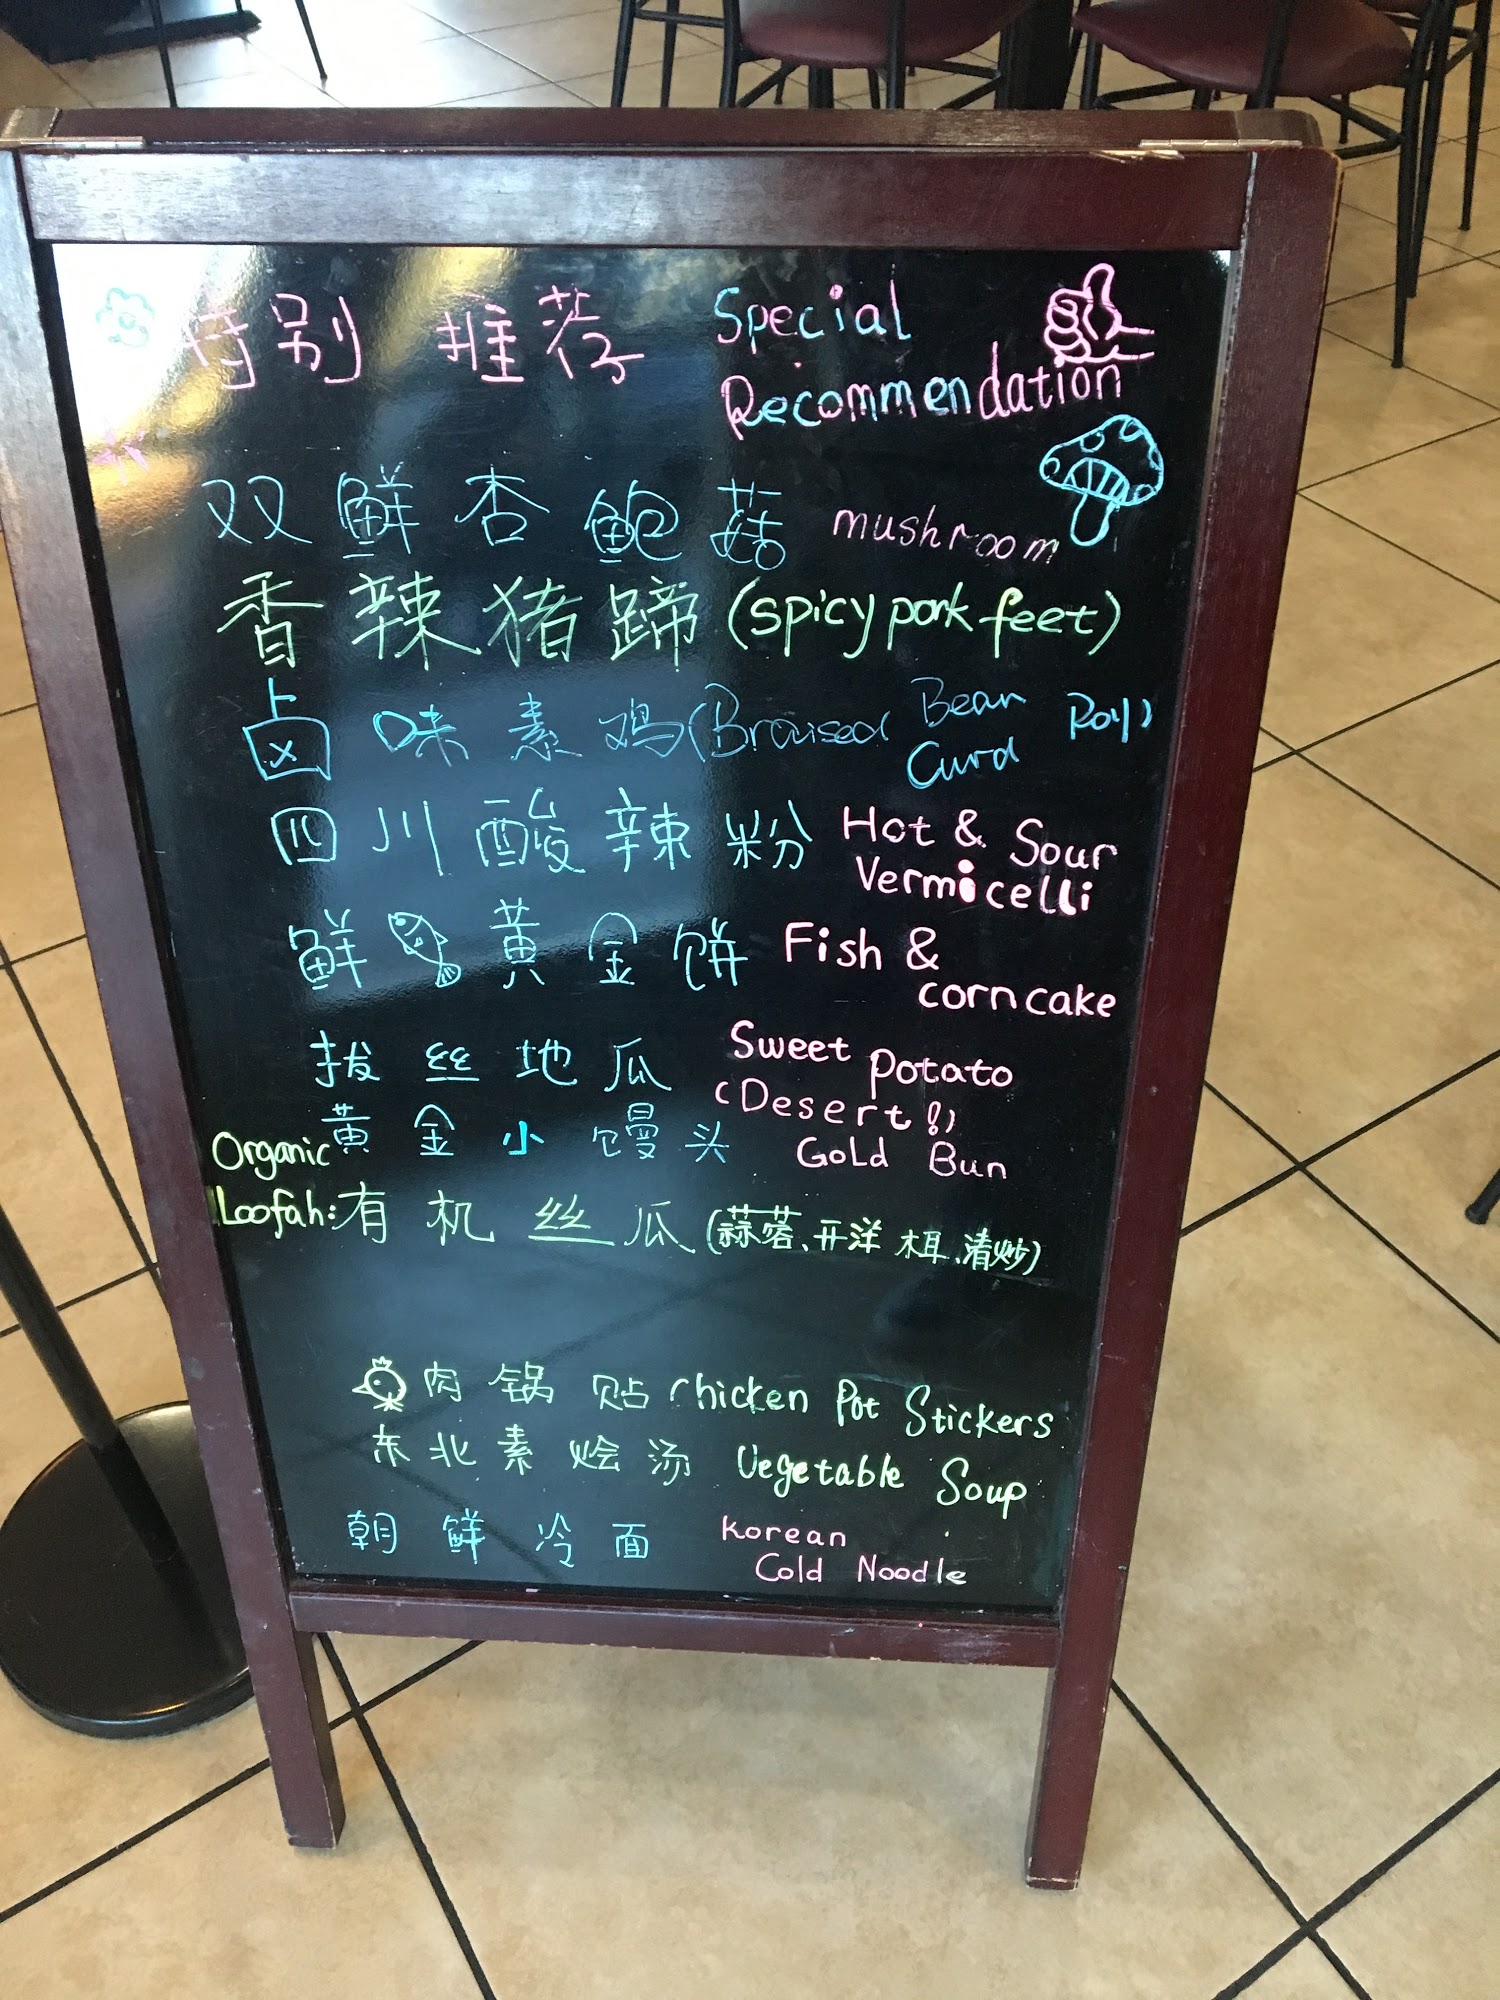 特别 推荐 Special
Recommendation
双鲜杏鲍菇 mushroom
香辣猪蹄 (spicy pork feet)
卤味素鸡 (Braised Bean Curd Roll)
四川酸辣粉 Hot & Sour
Vermicelli
鲜 黄金饼 Fish &
corn cake
拔丝地瓜 Sweet potato
(Desert!)
黄金小馒头 Gold Bun
Organic
Loofah: 有机丝瓜 (蒜蓉、开洋 木耳、清炒)
肉锅贴 Chicken Pot Stickers
东北素烩汤 Vegetable Soup
朝鲜冷面 Korean
Cold Noodle